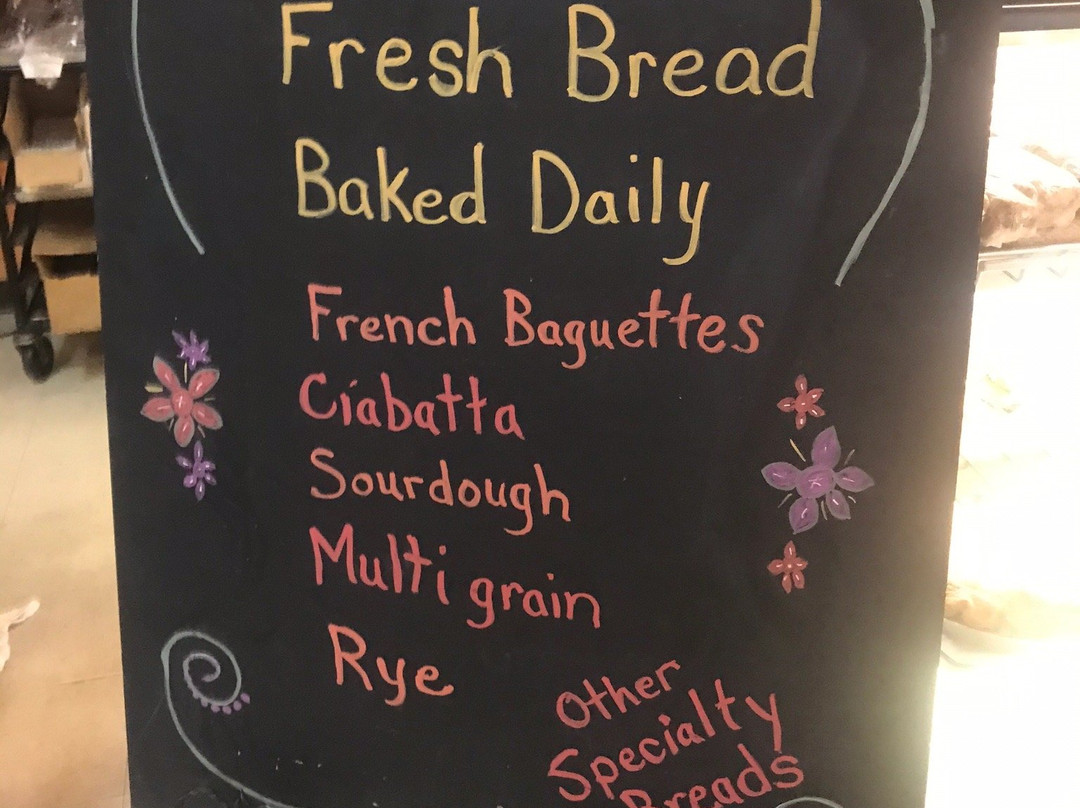 Fresh Bread
Baked Daily
French Baguettes
Ciabatta
Sourdough
Multi grain
Rye
Other
Specialty
Breads